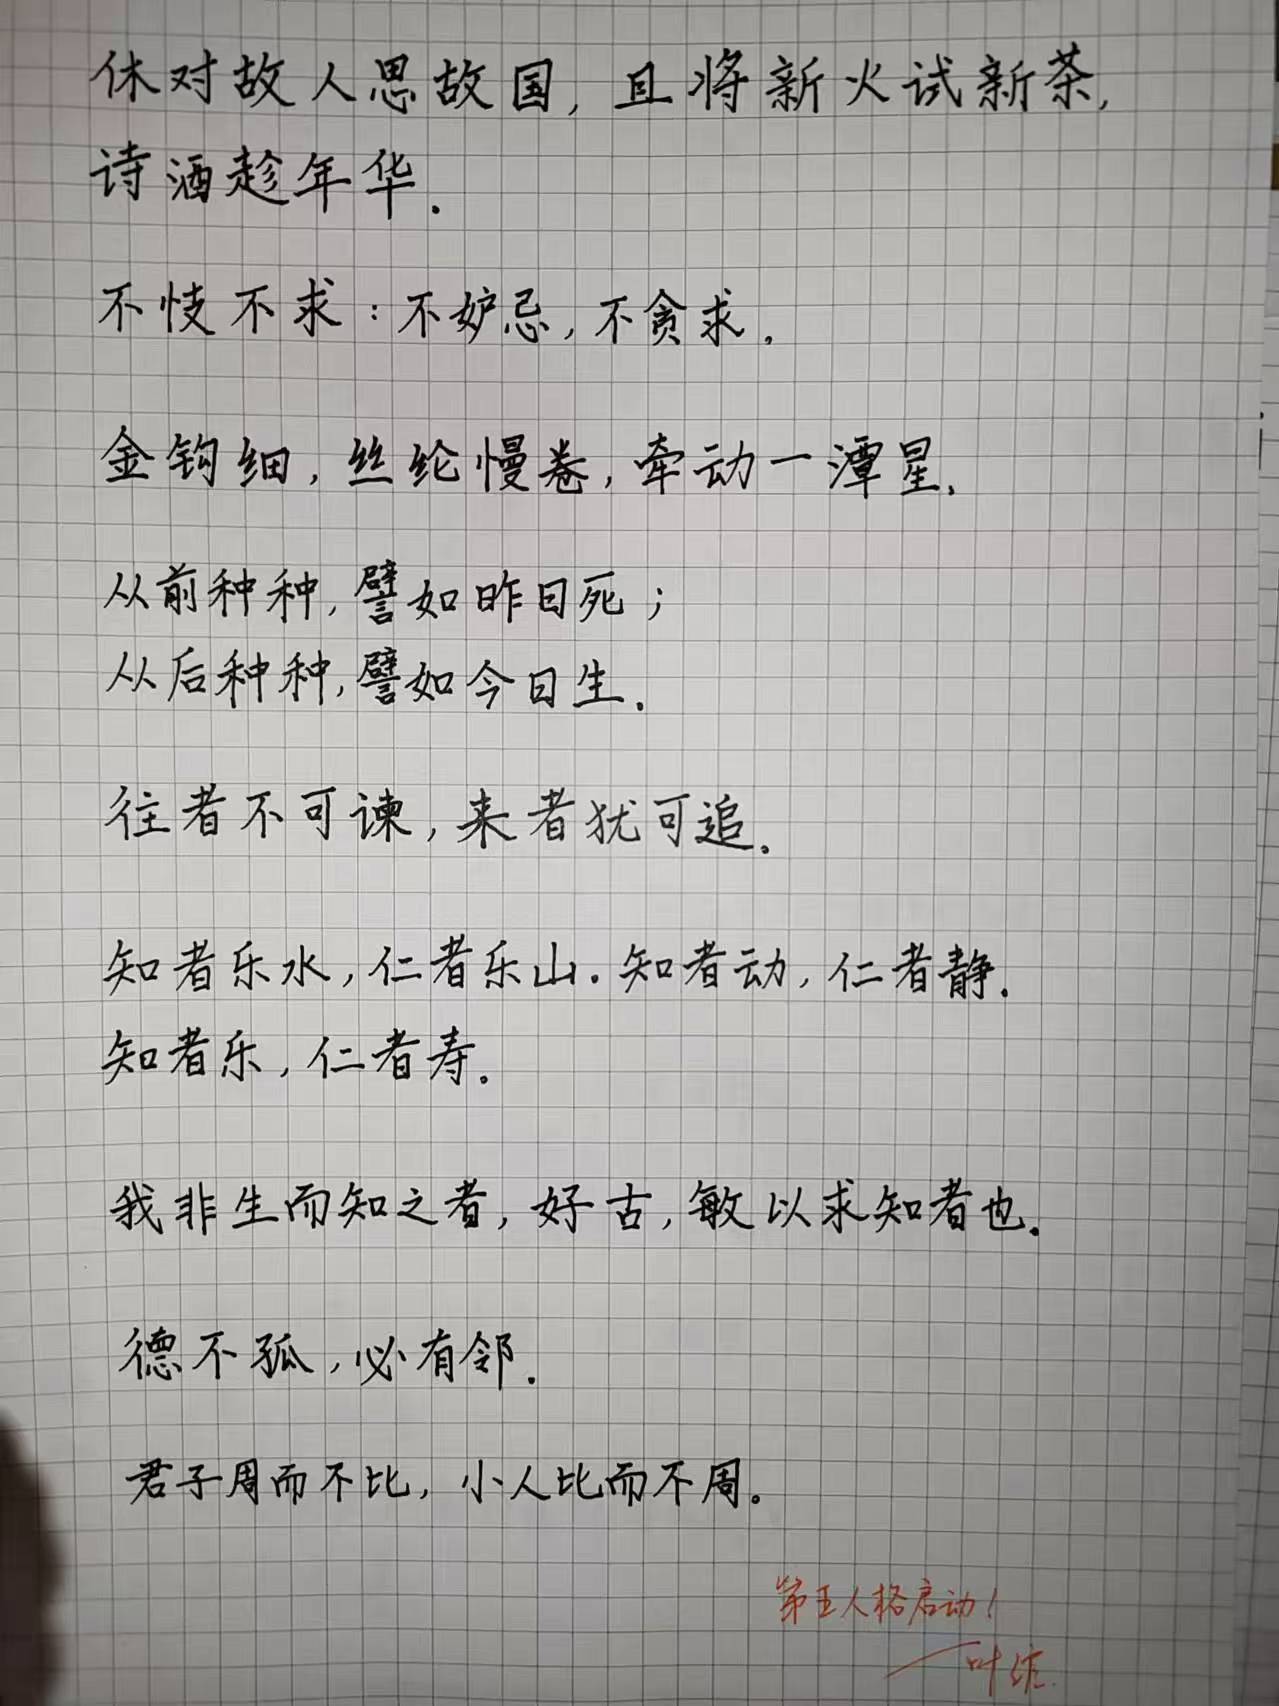 休对故人思故国，且将新火试新茶，
诗酒趁年华．
不忮不求：不妒忌，不贪求．
金钩细，丝纶慢卷，牵动一潭星．
从前种种，譬如昨日死；
从后种种，譬如今日生．
往者不可谏，来者犹可追．
知者乐水，仁者乐山．知者动，仁者静．
知者乐，仁者寿．
我非生而知之者，好古，敏以求知者也．
德不孤，必有邻．
君子周而不比，小人比而不周。
第五人格启动！
一叶